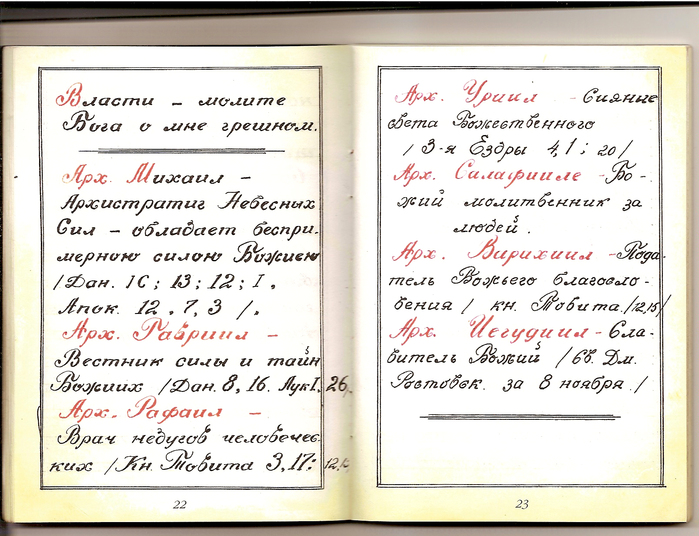 Власти – молите
Бога о мне грешном.
Арх. Михаил –
Архистратиг Небесных
Сил – обладает беспри-
мерною силою Божиею
/Дан. 10; 13; 12; 1,
Апок. 12, 7, 3 /.
Арх. Гавриил –
Вестник силы и тайн
Божиих /Дан. 8, 16. Лук 1, 26/.
Арх. Рафаил –
Врач недугов человечес-
ких /Кн. Товита 3, 17;
22
Арх. Уриил – Сияние
света Божественного
/ 3-я Ездры 4, 1; 20/
Арх. Салафииле – Бо-
жий молитвенник за
людей.
Арх. Варихиил – Пода-
тель Божьего благосло-
вения / кн. Товита. /12, 15/
Арх. Иегудиил – Сла-
витель Божий / Св. Дм.
Ростовск. за 8 ноября. /
23